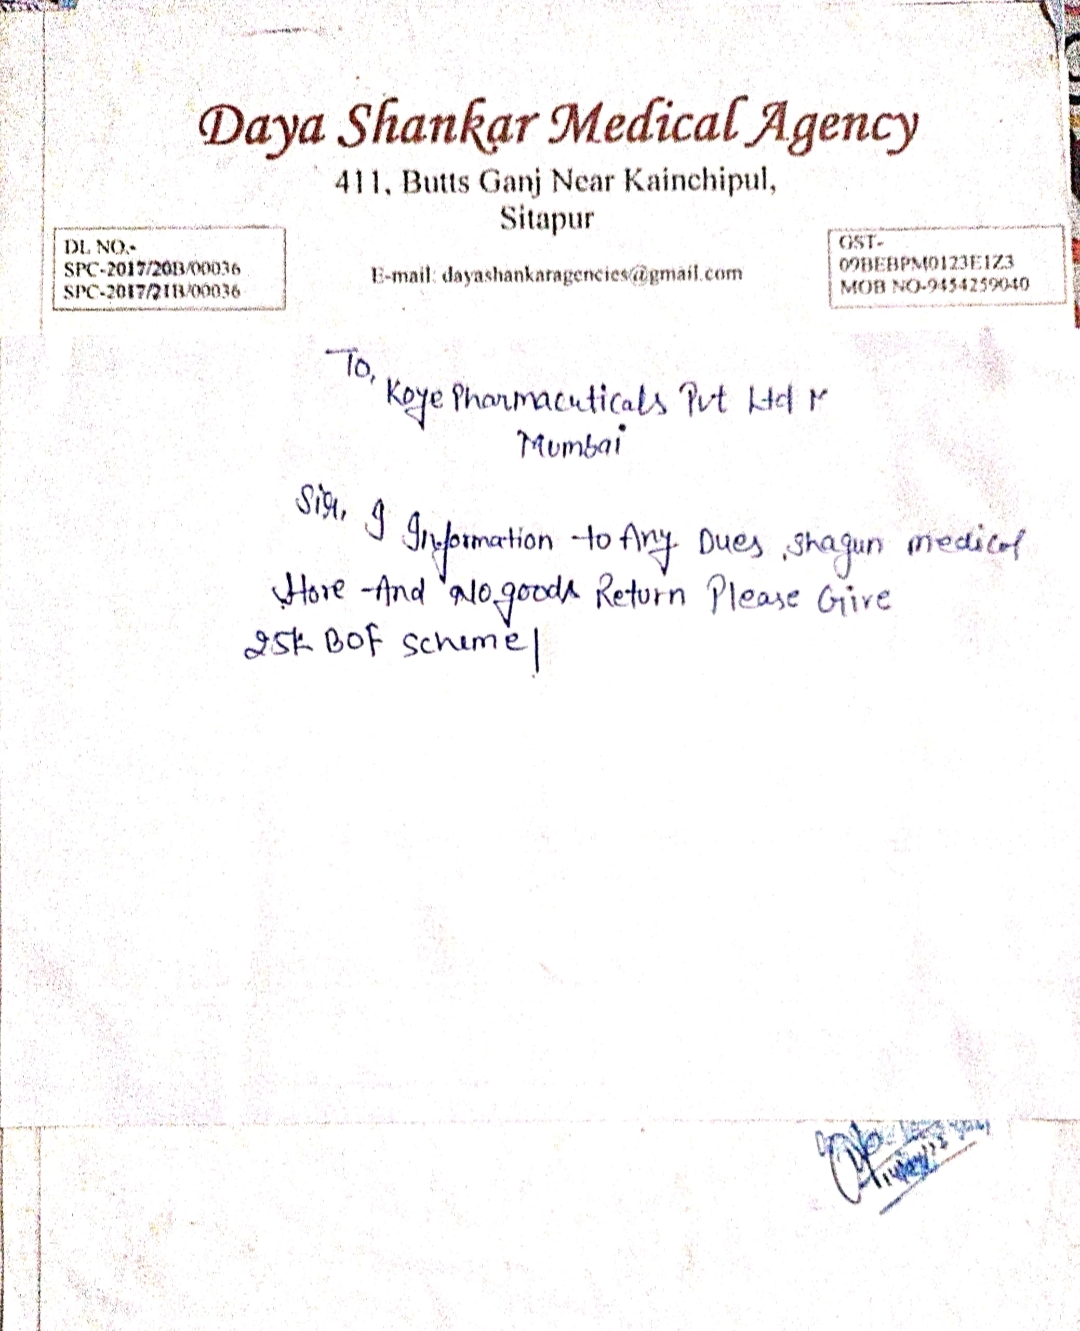 Daya Shankar Medical Agency
411, Butts Ganj Near Kainchipul,
Sitapur
DL NO.-
SPC-2017/20B/00036
SPC-2017/21B/00036
E-mail: dayashankaragencies@gmail.com
GST-
09BEBPM0123E1Z3
MOB NO-9454259040
To,
Koye Pharmacuticals Pvt Ltd
Mumbai
Sir, I Information to Any Dues, Shagun medical
Store And No goods Return Please Give
25k BOF scheme|